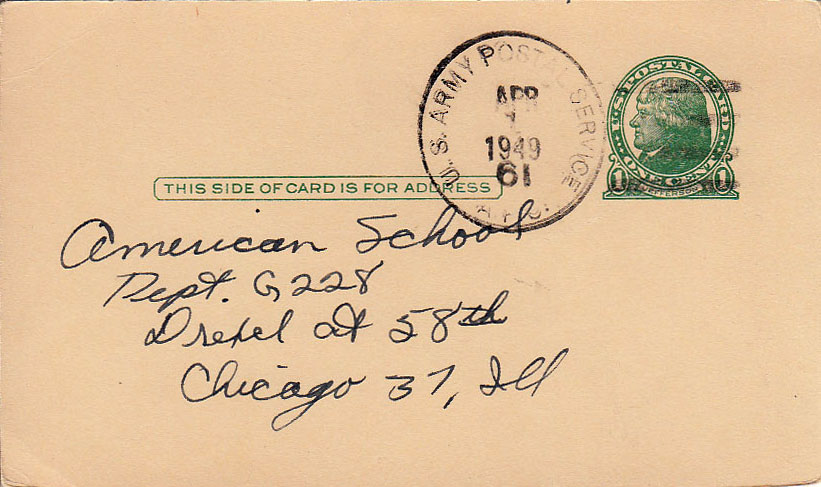 U. S. ARMY POSTAL SERVICE
APR
1
1949
61
A.P.O.
U.S. POSTAL CARD
ONE CENT
1 JEFFERSON 1
THIS SIDE OF CARD IS FOR ADDRESS
American School
Dept. G228
Drexel at 58th
Chicago 37, Ill